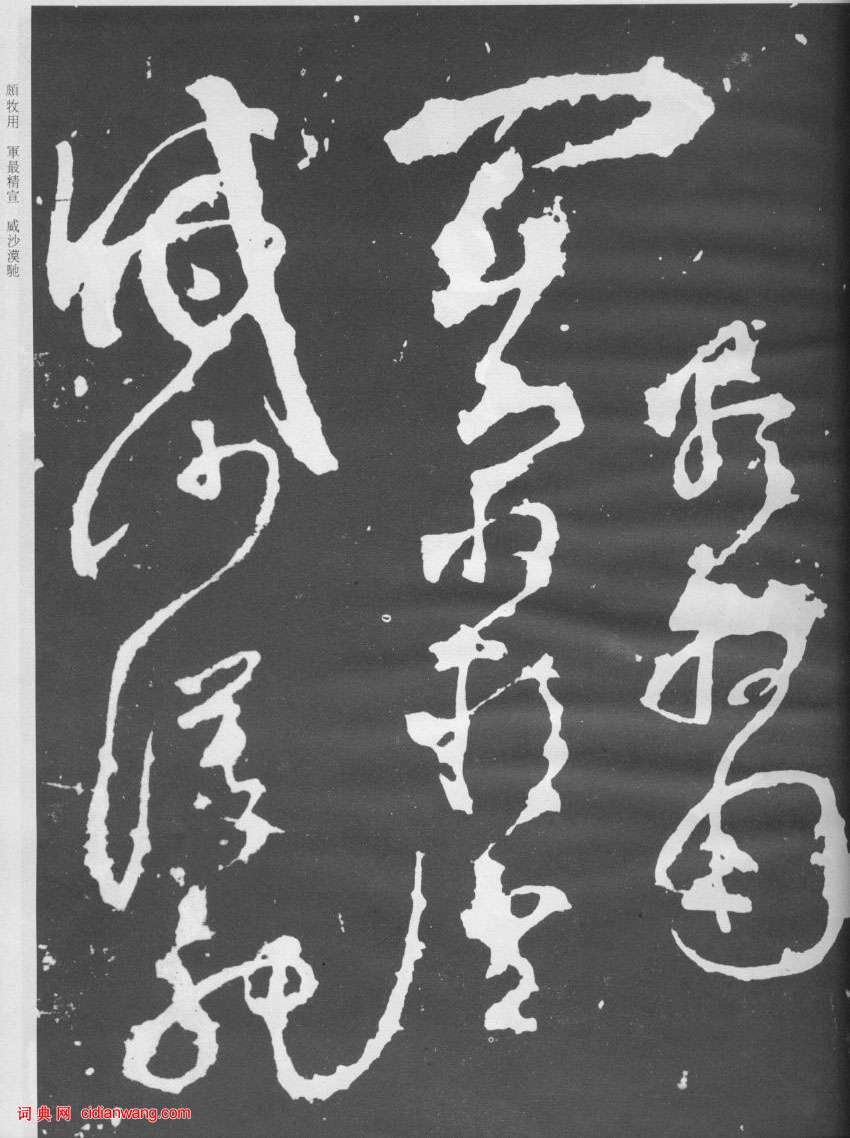 頗牧用
軍最精宣
威沙漠馳
頗牧用 軍最精宣 威沙漠馳
词典网 cidianwang.com